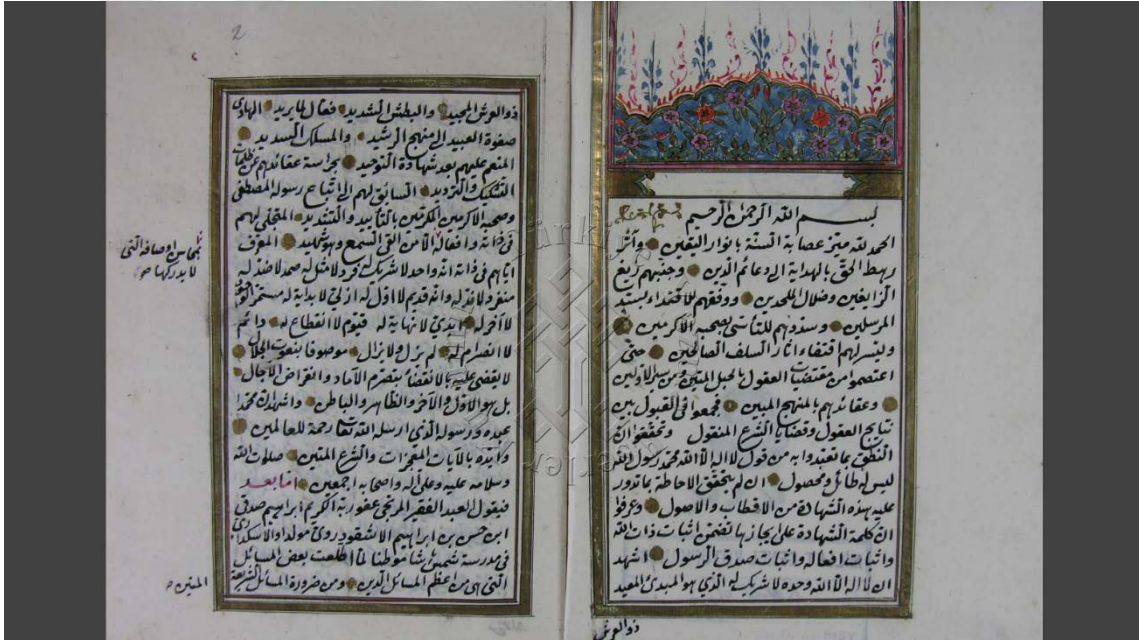 بسم الله الرحمن الرحيم
الحمد لله مميز عصابة السنة بانوار اليقين وآثر
رهط الحق بالهداية الى دعائم الدين وجنبهم زيغ
الزايغين وضلال الملحدين ووفقهم للاقتداء بسيد
المرسلين وسددهم للتأسى بصحبه الاكرمين
ويسر لهم اقتفاء اثار السلف الصالحين حتى
اعتصموا من مقتضيات العقول بالحبل المتين ومن سير الاولين
وعقائدهم بالمنهج المبين فجمعوا فى القبول بين
نتايج العقول وقضايا الشرع المنقول وتحققوا ان
النطق بما تعبدوا به من قول لا اله الا الله محمد رسول الله
ليس له طائل ومحصول ان لم يتحقق الاحاطة بما تدور
عليه هذه الشهادة من الاقطاب والاصول وعرفوا
ان كلمة الشهادة على ايجازها تضمن اثبات ذات الله
واثبات افعاله واثبات صدق الرسول اشهد
ان لا اله الا الله وحده لا شريك له الذي هو المبدئ المعيد
ذو العرش
2
ذو العرش المجيد والبطش الشديد فعال لما يريد الهادي
صفوة العبيد الى منهج الرشيد والمسلك السديد
المنعم عليهم بعد شهادة التوحيد بحراسة عقائدهم عن ظلمات
التشكيك والترديد السائق لهم الى اتباع رسوله المصطفى
وصحبه الاكرمين المكرمين بالتأييد والتشديد المتجلى لهم
فى ذاته وافعاله الا من القى السمع وهو شهيد المعرف
بمحاسن اوصافه التى
لا يدركها
اياهم فى ذاته انه واحد لا شريك له فرد لا مثل له صمد لا ضد له
منفرد لا ند له وانه قديم لا اول له ازلي لا بداية له مستمر الوجود
لا آخر له ابدي لا نهاية له قيوم لا انقطاع له دائم
لا انصرام له لم يزل ولا يزال موصوفا بنعوت الجلال
لا يقضى عليه بالانقضاء بتصرم الآماد وانقراض الآجال
بل هو الاول والآخر والظاهر والباطن واشهد ان محمدا
عبده ورسوله الذي ارسله الله تعالى رحمة للعالمين
وايده بالآيات المعجزات والشرع المتين صلوات الله
وسلامه عليه وعلى آله واصحابه اجمعين اما بعد
فيقول العبد الفقير المرتجى عفو ربه الكريم ابراهيم صدقي
ابن حسن بن ابراهيم الاشقودروي مولدا والاسكداري
فى مدرسة شمسي باشا موطنا لما اطلعت بعض المسائل
التى هى من اعظم المسائل الدين ومن ضرورة المسائل الشريعة
المتين